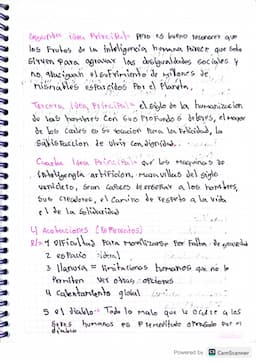 Segunda idea Principal= Pero es bueno reconocer que
los frutos de la inteligencia humana Parece que solo
sirven para agravar las desigualdades sociales y
no, atenuan el sufrimiento de millones de
miserables esparcidos Por el Planeta.
Tercera idea Principal= el siglo de la humanizacion
de los hombres con sus Profundos deberes, el mayor
de los cuales es su vocacion Para la felicidad, la
satisfaccion de vivir con dignidad.
Cuarta idea Principal= que las maquinas de
inteligencia artificial, maravillas del siglo
venidero, sean capaces de enseñar a los hombres,
sus creadores, el camino de respeto a la vida
y de la solidaridad
4) Acotaciones (
R/= 1 Dificultad Para movilizarse Por falta de gravedad
2 espacio ideal
3 llanura = limitaciones humanas que no le
Permiten ver otras opciones
4 calentamiento global
5 el diablo= Todo lo malo que le ocurre a los
seres humanos es
diablo
Powered by CS CamScanner